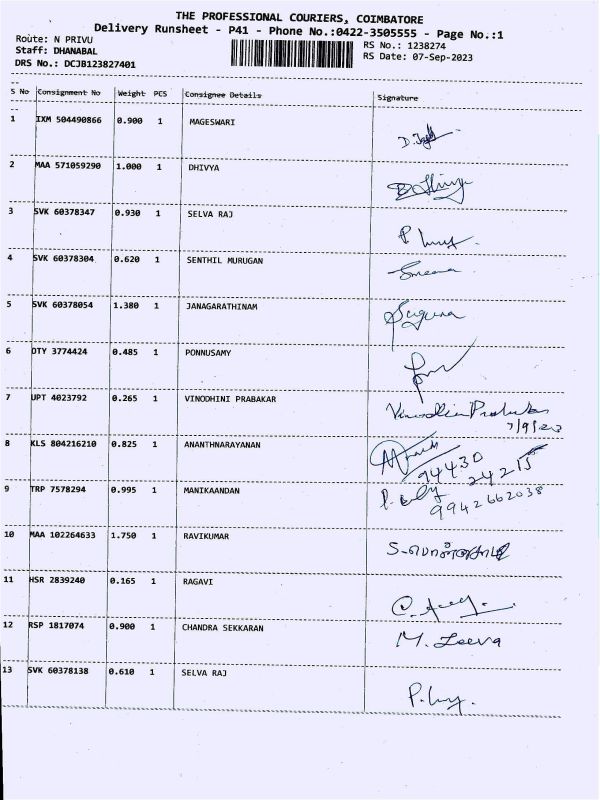 THE PROFESSIONAL COURIERS, COIMBATORE
Delivery Runsheet - P41 - Phone No.:0422-3505555 - Page No.:1
Route: N PRIVU
RS No.: 1238274
Staff: DHANABAL
RS Date: 07-Sep-2023
DRS No.: DCJB123827401
S No Consignment No Weight PCS Consignee Details Signature
1 IXM 504490866 0.900 1 MAGESWARI
2 MAA 571059290 1.000 1 DHIVYA
3 SVK 60378347 0.930 1 SELVA RAJ
4 SVK 60378304 0.620 1 SENTHIL MURUGAN
5 SVK 60378054 1.380 1 JANAGARATHINAM
Suguna
6 OTY 3774424 0.485 1 PONNUSAMY
7 UPT 4023792 0.265 1 VINODHINI PRABAKAR
Vinodhini Prabakar
7/9/23
8 KLS 804216210 0.825 1 ANANTHNARAYANAN
94430
24215
9 TRP 7578294 0.995 1 MANIKAANDAN
9942662038
10 MAA 102264633 1.750 1 RAVIKUMAR
11 HSR 2839240 0.165 1 RAGAVI
12 RSP 1817074 0.900 1 CHANDRA SEKKARAN
M. Jeeva
13 SVK 60378138 0.610 1 SELVA RAJ